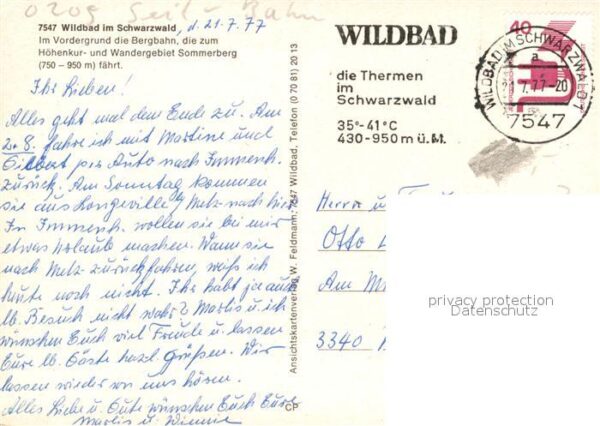 0209 Seil-Bahn
7547 Wildbad im Schwarzwald, d. 21.7.77
Im Vordergrund die Bergbahn, die zum
Höhenkur- und Wandergebiet Sommerberg
(750 – 950 m) fährt.
Ihr Lieben!
Alles geht mal dem Ende zu. Am
2.8. fahre ich mit Martine und
Gilbert per Auto nach Immenh.
zurück. Am Sonntag kommen
sie aus Longeville/Metz nach hier
In Immenh. wollen sie bei mir
etwas Urlaub machen. Wann sie
nach Metz zurückfahren, weiß ich
heute noch nicht. Ihr habt ja auch
lb. Besuch nicht wahr? Marlis u. ich
wünschen Euch viel Freude u. lassen
Eure lb. Gäste herzl. Grüßen. Wir
lassen wieder von uns hören.
Alles Liebe u. Gute wünschen Euch Eure
Marlis u.
Ansichtskartenverlag W. Feldmann, 7547 Wildbad, Telefon (0 70 81) 20 13
CP
WILDBAD
die Thermen
im
Schwarzwald
35°-41°C
430-950m ü.M.
40
WILDBAD IM SCHWARZWALD 1
a
7.77-20
7547
Herrn u.
Otto
Am
3340
privacy protection
Datenschutz